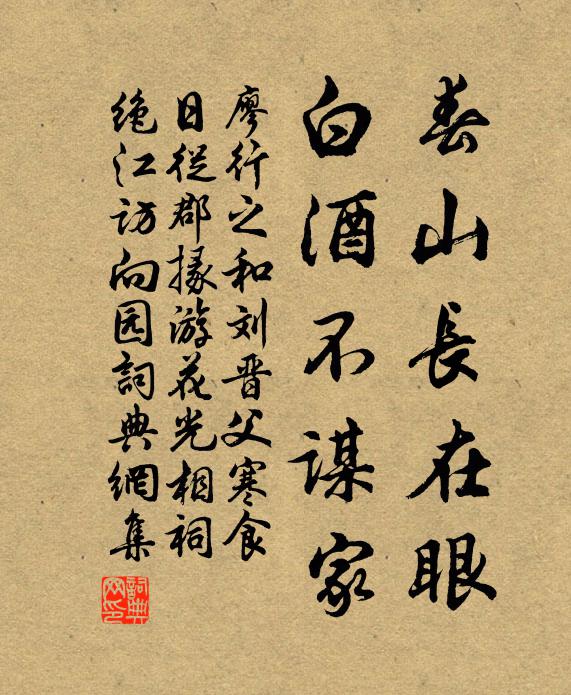 春山長在眼
白酒不謀家
廖行之和刘晋父寒食
日從郡掾游花光相祠
绝江訪向园詞典網集